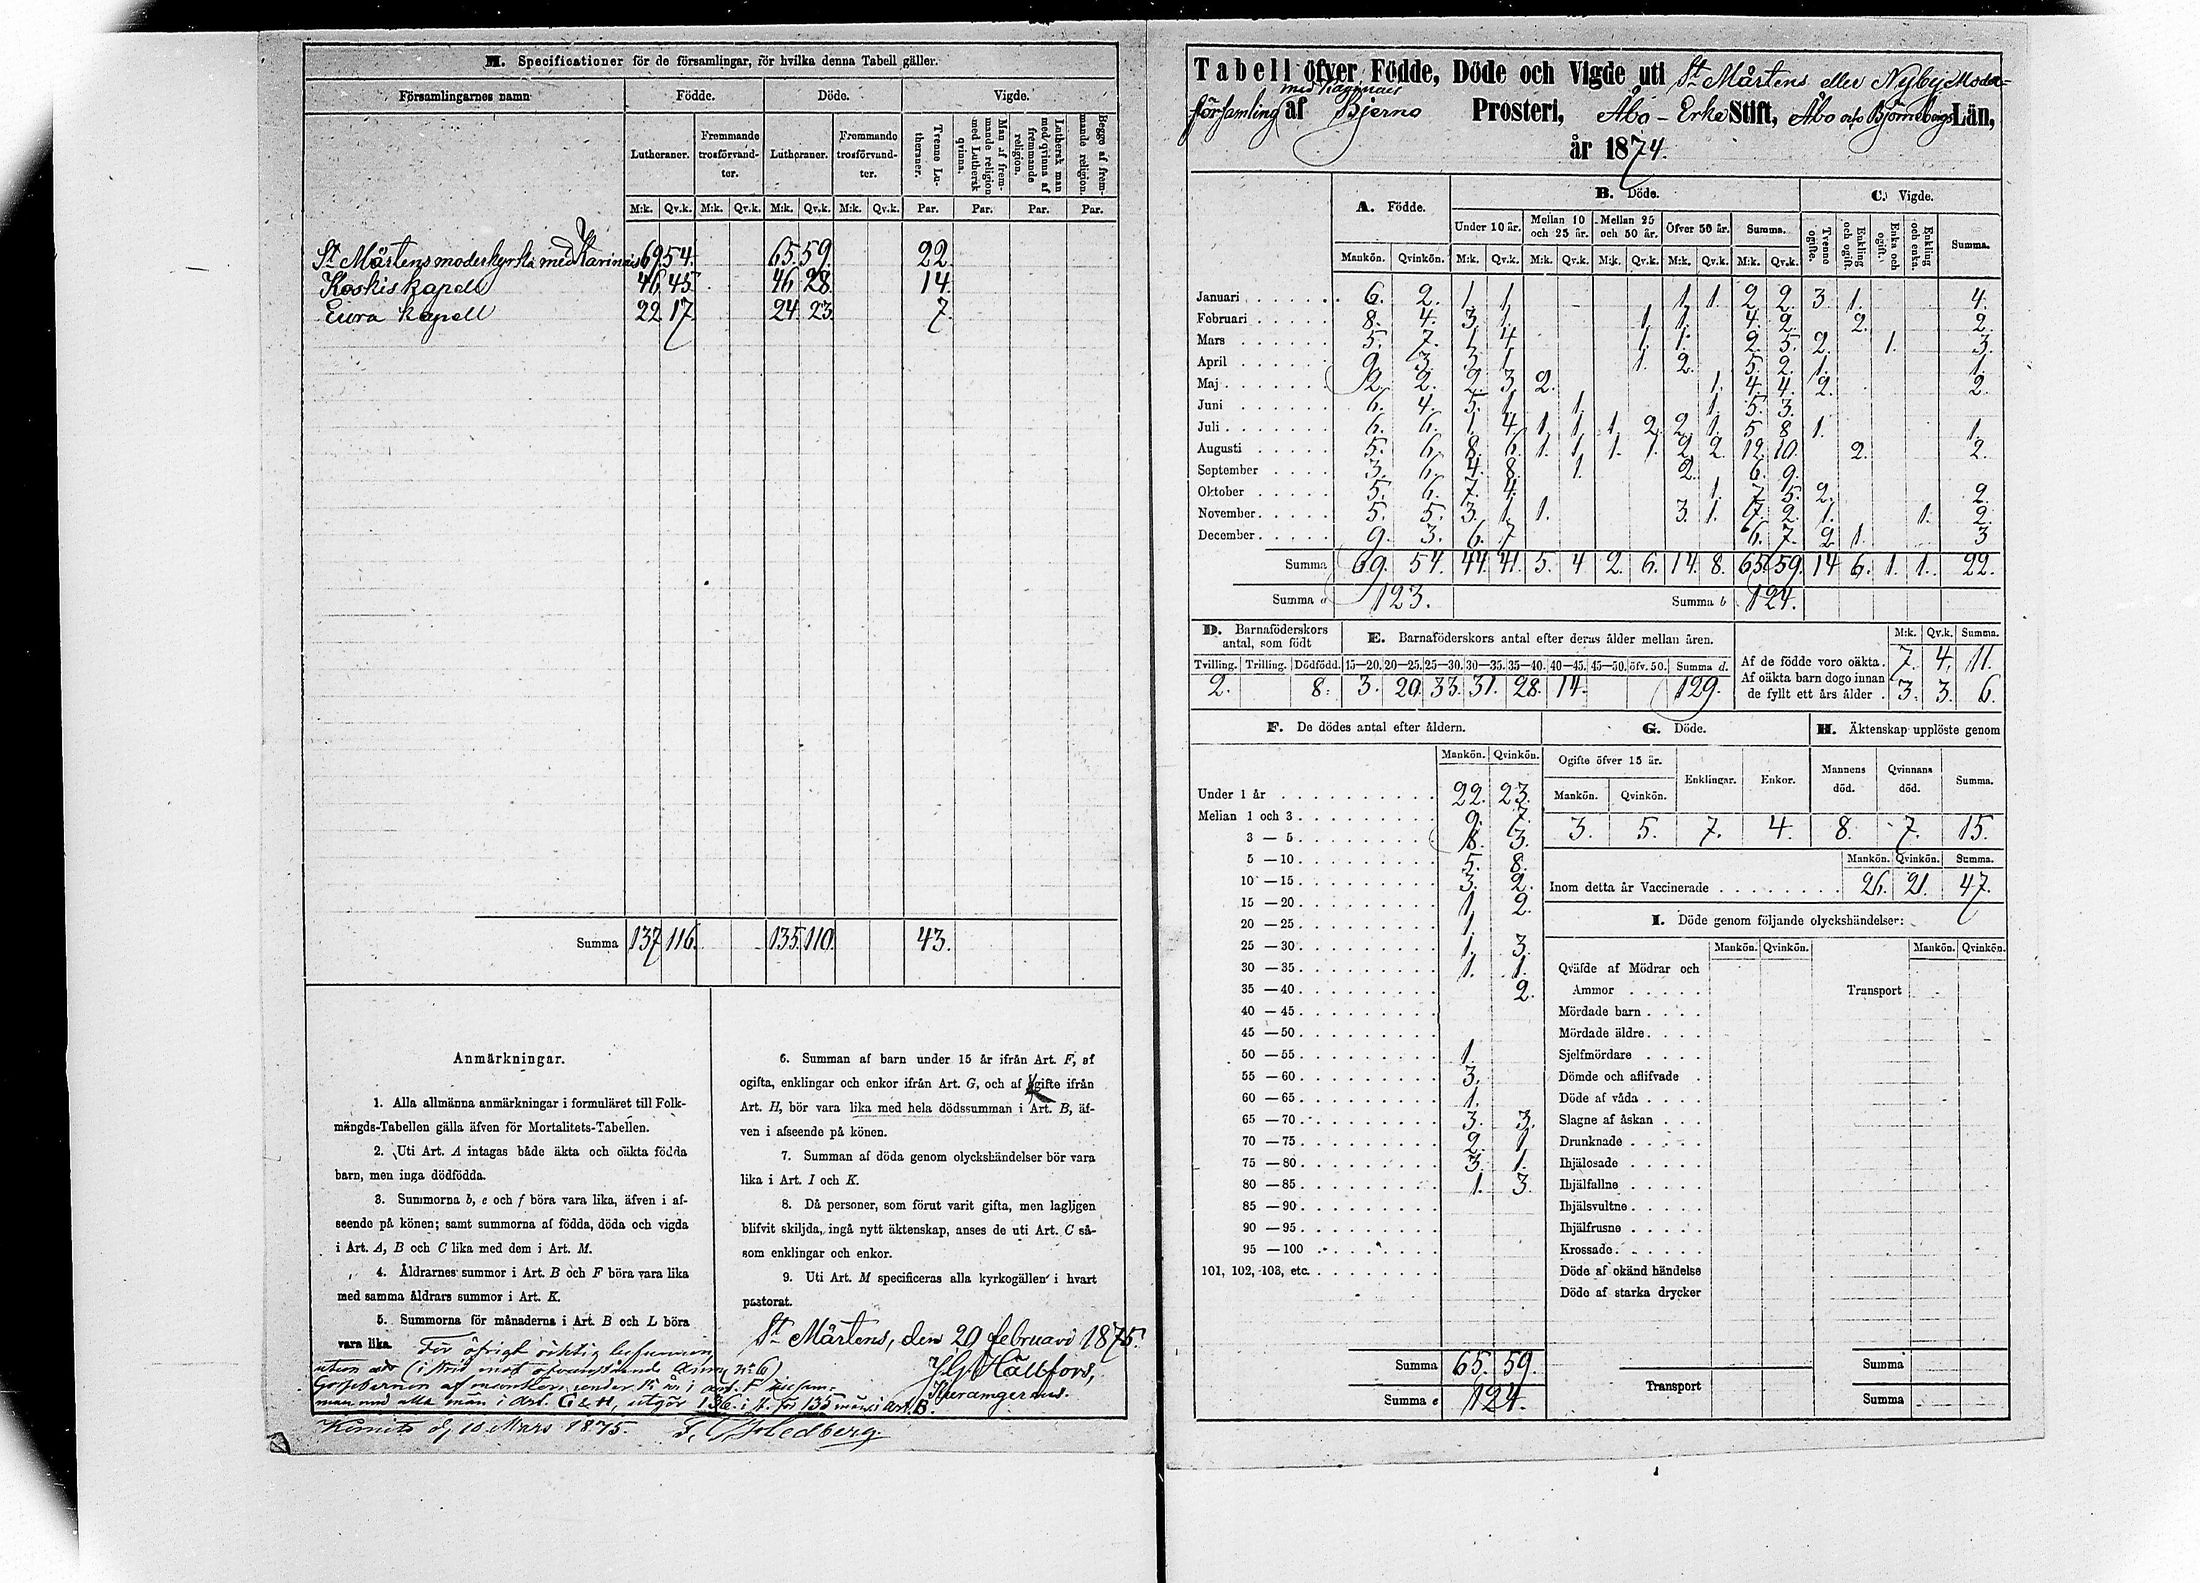 M. Specificationer för de församlingar, för hvilka denna Tabell gäller.
Församlingarnes namn Födde. Döde. Vigde.
Lutheraner. Fremmande trosförvandter. Lutheraner. Fremmande trosförvandter. Trenne Lutheraner. Man af fremmande religion med Luthersk qvinna. Luthersk man med qvinna af fremmande religion. Begge af fremmande religion.
M:k. Qv.k. M:k. Qv.k. M:k. Qv.k. M:k. Qv.k. Par. Par. Par. Par.
St Mårtens moderkyrka med Karinais 69 54. 65. 59. 22.
Koskis kapell 46 45 46 28. 14.
Eura kapell 22 17. 24. 23. 7.
Summa 137 116. 135. 110. 43.
Anmärkningar.
1. Alla allmänna anmärkningar i formuläret till Folk-
mängds-Tabellen gälla äfven för Mortalitets-Tabellen.
2. Uti Art. A intagas både äkta och oäkta födda
barn, men inga dödfödda.
3. Summorna b, e och f böra vara lika, äfven i af-
seende på könen; samt summorna af födda, döda och vigda
i Art. A, B och C lika med dem i Art. M.
4. Åldrarnes summor i Art. B och F böra vara lika
med samma åldrars summor i Art. K.
5. Summorna för månaderna i Art. B och L böra
vara lika.
6. Summan af barn under 15 år ifrån Art. F, af
ogifta, enklingar och enkor ifrån Art. G, och af gifte ifrån
Art. H, bör vara lika med hela dödssumman i Art. B, äf-
ven i afseende på könen.
7. Summan af döda genom olyckshändelser bör vara
lika i Art. I och K.
8. Då personer, som förut varit gifta, men lagligen
blifvit skiljda, ingå nytt äktenskap, anses de uti Art. C så-
som enklingar och enkor.
9. Uti Art. M specificeras alla kyrkogällen i hvart
pastorat.
St Mårtens, den 20 februari 1875.
För öfrigt riktig befunnen,
utom att (i strid mot ofvanstående Anm. N:o 6)
af mankön under 15 år i art. F
man med alla män i Art. G & H, utgör 136 i st. för 135 män i Art. B.
Kimito d. 10 Mars 1875.
Hedberg
Tabell öfver Födde, Döde och Vigde uti St Mårtens eller Nyby Moder-
församling med Karinais af Bjerno Prosteri, Åbo - Erke Stift, Åbo och Björneborgs Län,
år 1874.
A. Födde. B. Döde. C. Vigde.
Under 10 år. Mellan 10 och 25 år. Mellan 25 och 50 år. Öfver 50 år. Summa. Trenne ogifte. Enkling och ogift. Enka och ogift. Enkling och enka. Summa.
Mankön. Qvinkön. M:k. Qv.k. M:k. Qv.k. M:k. Qv.k. M:k. Qv.k. M:k. Qv.k.
Januari 6. 2. 1. 1. 1. 1. 2. 2. 3. 1. 4.
Februari 8. 4. 3. 1. 1. 1. 4. 2. 2. 2.
Mars 5. 7. 1. 4. 1. 1. 2. 5. 2. 1. 3.
April 9. 3. 3. 1. 1. 2. 5. 2. 1. 1.
Maj 2. 2. 2. 3. 2. 1. 4. 4. 2. 2.
Juni 6. 4. 5. 1. 1. 1. 5. 3.
Juli 6. 6. 1. 4. 1. 1. 1. 2. 2. 1. 5. 8. 1. 1.
Augusti 5. 6. 8. 6. 1. 1. 1. 1. 2. 2. 12. 10. 2. 2.
September 3. 6. 4. 8. 1. 2. 6. 9.
Oktober 5. 6. 7. 4. 1. 7. 5. 2. 2.
November 5. 5. 3. 1. 1. 3. 1. 7. 2. 1. 1. 2.
December 9. 3. 6. 7. 6. 7. 2. 1. 3
Summa 69. 54. 44. 41. 5. 4 2. 6. 14. 8. 65. 59. 14 6. 1. 1. 22.
Summa a 123. Summa b 124.
D. Barnaföderskors antal, som födt
E. Barnaföderskors antal efter deras ålder mellan åren.
M:k. Qv.k. Summa.
Tvilling. Trilling. Dödfödd. 15—20. 20—25. 25—30. 30—35. 35—40. 40—45. 45—50. öfv. 50. Summa d.
2. 8. 3. 20. 33. 31. 28. 14. 129.
Af de födde voro oäkta. 7. 4. 11.
Af oäkta barn dogo innan
de fyllt ett års ålder . 3. 3. 6.
F. De dödes antal efter åldern.
Mankön. Qvinkön.
Under 1 år 22. 23.
Mellan 1 och 3 9. 7.
3 — 5 8. 3.
5 — 10 5. 8.
10 — 15 3. 2.
15 — 20 1. 2.
20 — 25 1.
25 — 30 1. 3.
30 — 35 1. 1.
35 — 40 2.
40 — 45
45 — 50
50 — 55 1.
55 — 60 3.
60 — 65 1.
65 — 70 3. 3.
70 — 75 2. 1
75 — 80 3. 1.
80 — 85 1. 3.
85 — 90
90 — 95
95 — 100
101, 102, 103, etc.
Summa 65. 59.
Summa e 124.
G. Döde.
Ogifte öfver 15 år. Enklingar. Enkor.
Mankön. Qvinkön.
3. 5. 7. 4.
H. Äktenskap upplöste genom
Mannens död. Qvinnans död. Summa.
8. 7. 15.
Mankön. Qvinkön. Summa.
Inom detta år Vaccinerade 26. 21. 47.
I. Döde genom följande olyckshändelser:
Mankön. Qvinkön. Mankön. Qvinkön.
Qväfde af Mödrar och
Ammor Transport
Mördade barn
Mördade äldre
Sjelfmördare
Dömde och aflifvade
Döde af våda
Slagne af åskan
Drunknade
Ihjälosade
Ihjälfallne
Ihjälsvultne
Ihjälfrusne
Krossade
Döde af okänd händelse
Döde af starka drycker
Summa
Transport
Summa